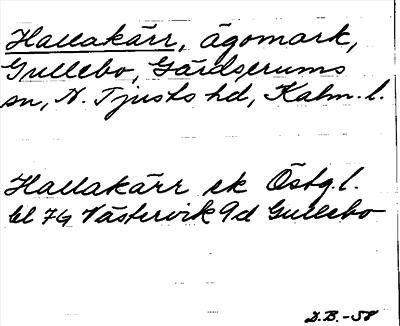 Hallakärr, ägomark,
Gullebo, Gärdserums
sn, N. Tjusts hd, Kalm. l.
Hallakärr ek Östg. l.
bl 74 Västervik 9d Gullebo
D.B.-58